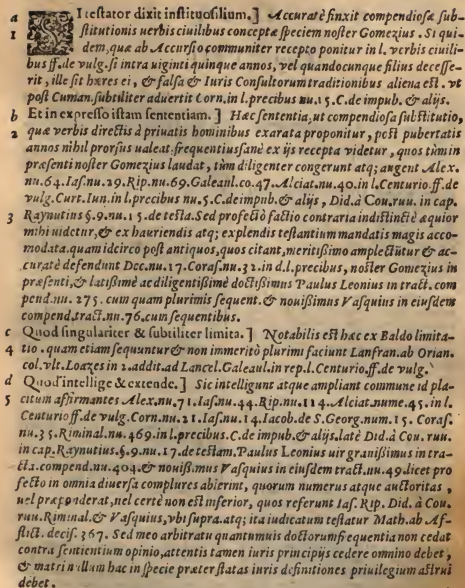 a Si testator dixit instituo filium.] Accuratè finxit compendiosæ sub-
1 stitutionis uerbis ciuilibus conceptæ speciem noster Gomezius. Si qui-
dem, quæ ab Accursio communiter recepto ponitur in l. verbis ciuili-
bus ff. de vulg. si intra uiginti quinque annos, vel quandocunque filius decesse-
rit, ille sit hæres ei, & falsa & Iuris Consultorum traditionibus aliena est. vt
post Cuman. subtiliter aduertit Corn. in l. precibus nu. 15. C. de impub. & alijs.
b Et in expresso istam sententiam.] Hæc sententia, ut compendiosa substitutio,
2 quæ verbis directis à priuatis hominibus exarata proponitur, post pubertatis
annos nihil prorsus ualeat. frequentius sanè ex ijs recepta videtur, quos tùm in
præsenti noster Gomezius laudat, tùm diligenter congerunt atq; augent Alex.
nu. 64. Ias. nu. 29. Rip. nu. 69. Galeaul. co. 47. Alciat. nu. 40. in l. Centurio. ff. de
vulg. Curt. Iun. in l. precibus nu. 5. C. de impub. & alijs, Did. à Cou. ruu. in cap.
3 Raynutius §. 9. nu. 15. de testa. Sed profectò factio contraria indistinctè æquior
mihi uidetur, & ex hauriendis atq; explendis testantium mandatis magis acco-
modata. quam idcirco post antiquos, quos citant, meritißimo amplectūtur & ac-
curatè defendunt Dec. nu. 17. Coras. nu. 32. in d. l. precibus, noster Gomezius in
præsenti, & latißimè ac diligentißimè doctißimus Paulus Leonius in tract. com
pend. nu. 275. cum quam plurimis sequent. & nouißimus Vasquius in eiusdem
compend. tract. nu. 76. cum sequentibus.
c Quod singulariter & subtiliter limita.] Notabilis est hæc ex Baldo limita-
4 tio. quam etiam sequuntur & non immeritò plurimi faciunt Lanfran. ab Orian.
col. vlt. Loazes in 2. addit. ad Lancel. Galeaul. in rep. l. Centurio. ff. de vulg.
d Quod intellige & extende.] Sic intelligunt atque ampliant commune id pla-
5 citum affirmantes Alex. nu. 71. Ias. nu. 44. Rip. nu. 114. Alciat. nume. 45. in l.
Centurio ff. de vulg. Corn. nu. 21. Ias. nu. 14. Iacob. de S. Georg. num. 15. Coras.
nu. 35. Riminal. nu. 469. in l. precibus. C. de impub. & alijs. latè Did. à Cou. ruu.
in cap. Raynutius. §. 9. nu. 17. de testam. Paulus Leonius uir granißimus in tra-
cta. compend. nu. 404. & nouiß. mus Vasquius in eiusdem tract. nu. 49. licet pro
fecto in omnia diuersa complures abierint, quorum numerus atque auctoritas,
uel præponderat, nel certè non est inferior, quos referunt Ias. Rip. Did. à Cou.
ruu. Riminal. & Vasquius, vbi supra. atq; ita iudicatum testatur Math. ab Af-
flict. decis. 367. Sed meo arbitratu quantumuis doctorum frequentia non cedat
contra sentientium opinio, attentis tamen iuris principijs cedere omnino debet,
& matri nullum hac in specie præter statas iuris definitiones priuilegium astrui
debet.